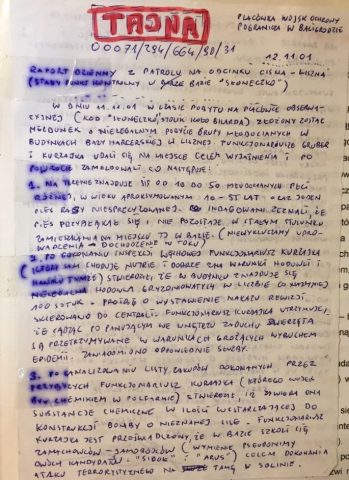 TAJNA
00071/294/664/90/31
PLACÓWKA WOJSK OCHRONY
POGRANICZA W BALIGRODZIE
12.11.01
RAPORT DZIENNY Z PATROLU NA ODCINKU CISNA - LISZNA
(STAŁY PUNKT KONTROLNY W BARZE BAZIE "SŁONECZKO")
W DNIU 11.11.01 W CZASIE POBYTU NA PLACÓWCE OBSERWA-
CYJNEJ (KOD "SŁONECZKO", STOLIK KOŁO BILARDA) ZŁOŻONY ZOSTAŁ
MELDUNEK O NIELEGALNYM POBYCIE GRUPY MŁODOCIANYCH W
BUDYNKACH BAZY HARCERSKIEJ W LISZNEJ. FUNKCJONARIUSZE GRUBER
I KURAJKA UDALI SIĘ NA MIEJSCE CELEM WYJAŚNIENIA I PO
POWROCIE ZAMELDOWALI CO NASTĘPUJE:
1. NA TERENIE ZNAJDUJE SIĘ OD 10 DO 50 MŁODOCIANYCH PŁCI
RÓŻNEJ, W WIEKU APROKSYMOWANYM 10-55 LAT ORAZ JEDEN
PIES RASY NIESPRECYZOWANEJ. INDAGOWANI ZEZNALI, ŻE
PIES PRZYBŁĄKAŁ SIĘ I NIE POZOSTAJE W STAŁYM STOSUNKU
ZAMIESZKANIA PO MIEJSCU TO W BAZIE. (NIEWYKLUCZAMY UPRO-
WADZENIA → DOCHODZENIE W TOKU)
2. PO DOKONANIU INSPEKCJI WĘCHOWEJ FUNKCJONARIUSZ KURAJKA
(KTÓRY SAM HODUJE NUTRIE I DOBRZE ZNA WARUNKI HODOWLI I
HANDLU TYMŻE) STWIERDZIŁ, ŻE W BUDYNKU ZNAJDUJE SIĘ
NIELEGALNA HODOWLA GRYZONIOWATYCH W LICZBIE CO NAJMNIEJ
100 SZTUK - PROŚBĘ O WYSTAWIENIE NAKAZU REWIZJI
SKIEROWANO DO CENTRALI. FUNKCJONARIUSZ KURAJKA UTRZYMUJE,
ŻE SĄDZĄC PO PANUJĄCYM WE WNĘTRZU ZADUCHU ZWIERZĘTA
SĄ PRZETRZYMYWANE W WARUNKACH GROŻĄCYCH WYBUCHEM
EPIDEMII. ZAWIADOMIONO ODPOWIEDNIE SŁUŻBY.
3. PO ZANALIZOWANIU LISTY ZAKUPÓW DOKONANYCH PRZEZ
FUNKCJONARIUSZ KURAJKA (KTÓREGO WUJEK
BYŁ CHEMIKIEM W POLFARMIE) STWIERDZIŁ, IŻ ZAWIERA ONA
SUBSTANCJE CHEMICZNE W ILOŚCI WYSTARCZAJĄCEJ DO
KONSTRUKCJI BOMBY O NIEZNANEJ SILE. FUNKCJONARIUSZ
KURAJKA JEST PRZEŚWIADCZONY, ŻE W BAZIE SZKOLI SIĘ
ZAMACHOWCÓW - SAMOBÓJCÓW (WYMIENIĘ PSEUDONIMY
DWÓCH KANDYDATÓW - "SIDOR" I "ARUS") CELEM DOKONANIA
ATAKU TERRORYSTYCZNEGO NA TAMĘ W SOLINIE.